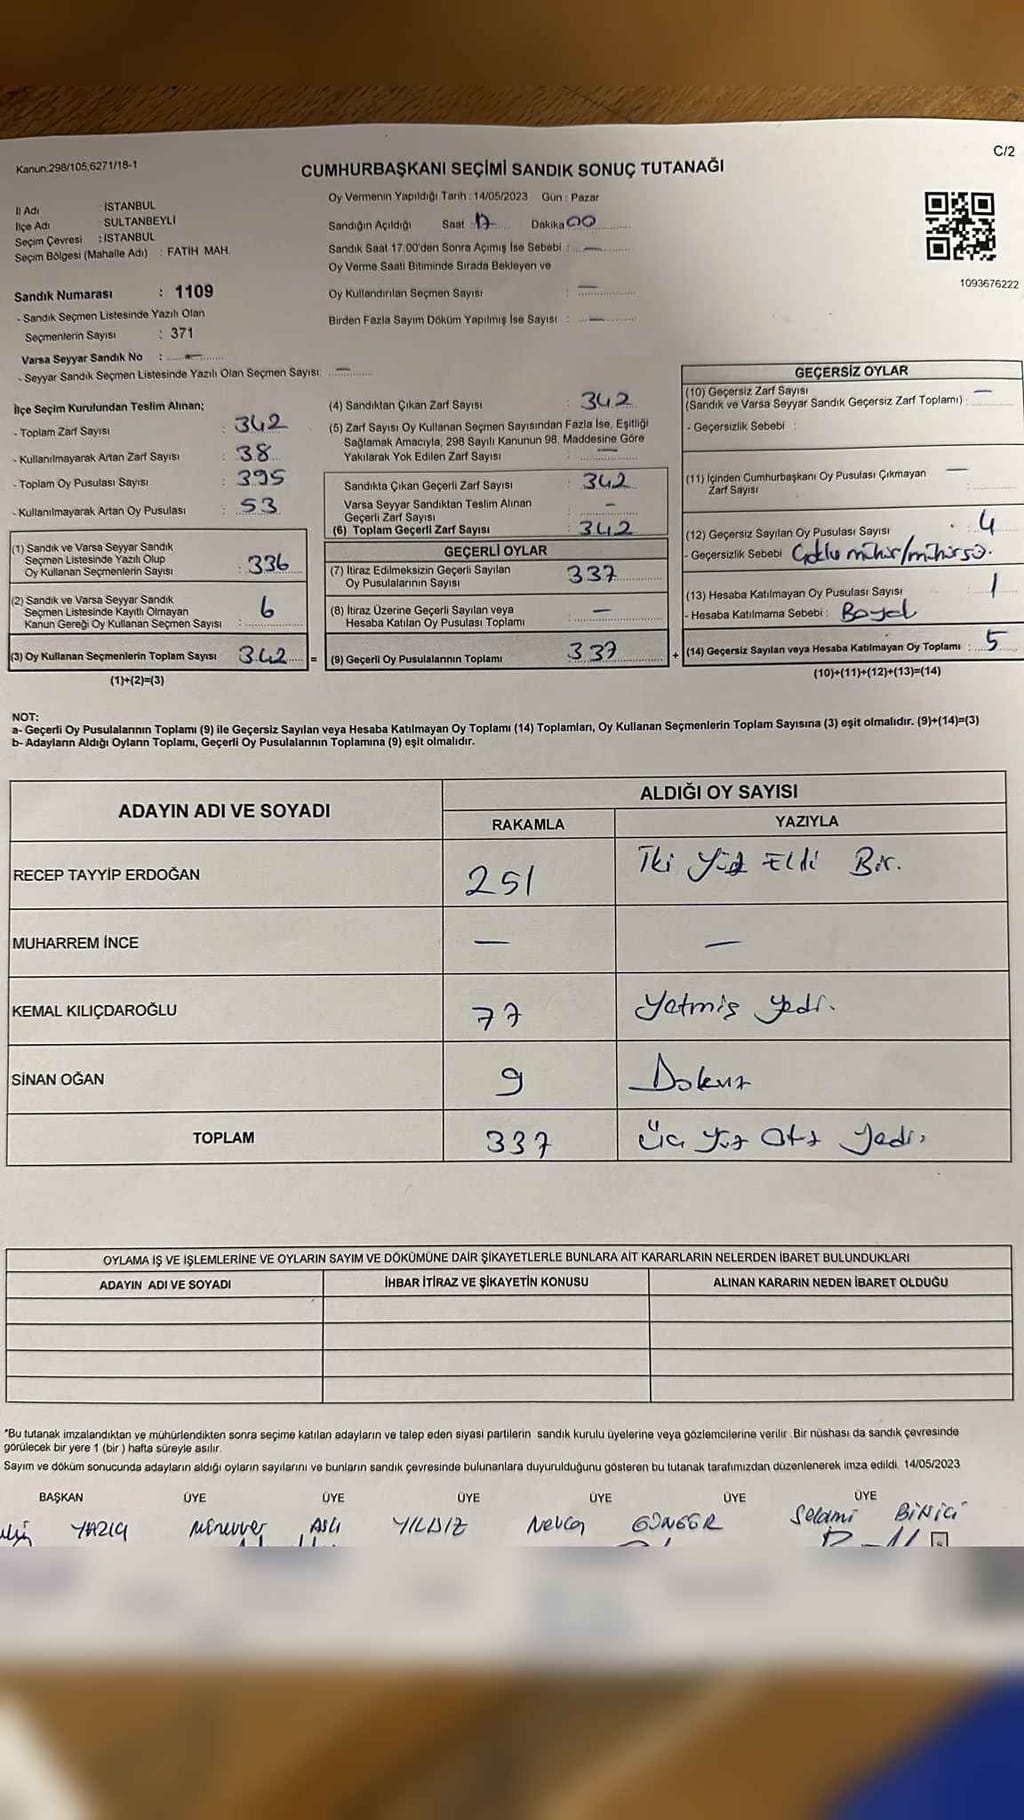 Kanun:298/105,6271/18-1
C/2
CUMHURBAŞKANI SEÇİMİ SANDIK SONUÇ TUTANAĞI
İl Adı : İSTANBUL
İlçe Adı : SULTANBEYLİ
Seçim Çevresi : İSTANBUL
Seçim Bölgesi (Mahalle Adı) : FATİH MAH.
Oy Vermenin Yapıldığı Tarih : 14/05/2023 Gün : Pazar
Sandığın Açıldığı Saat 17 Dakika 00
Sandık Saat 17:00'den Sonra Açımış İse Sebebi : —
Oy Verme Saati Bitiminde Sırada Bekleyen ve
Oy Kullandırılan Seçmen Sayısı : —
Birden Fazla Sayım Döküm Yapılmış İse Sayısı : —
1093676222
Sandık Numarası : 1109
- Sandık Seçmen Listesinde Yazılı Olan
Seçmenlerin Sayısı : 371
Varsa Seyyar Sandık No : —
- Seyyar Sandık Seçmen Listesinde Yazılı Olan Seçmen Sayısı: —
İlçe Seçim Kurulundan Teslim Alınan;
- Toplam Zarf Sayısı : 342
- Kullanılmayarak Artan Zarf Sayısı : 38
- Toplam Oy Pusulası Sayısı : 395
- Kullanılmayarak Artan Oy Pusulası : 53
(1) Sandık ve Varsa Seyyar Sandık
Seçmen Listesinde Yazılı Olup
Oy Kullanan Seçmenlerin Sayısı : 336
(2) Sandık ve Varsa Seyyar Sandık
Seçmen Listesinde Kayıtlı Olmayan
Kanun Gereği Oy Kullanan Seçmen Sayısı : 6
(3) Oy Kullanan Seçmenlerin Toplam Sayısı 342 =
(1)+(2)=(3)
(4) Sandıktan Çıkan Zarf Sayısı : 342
(5) Zarf Sayısı Oy Kullanan Seçmen Sayısından Fazla İse, Eşitliği
Sağlamak Amacıyla, 298 Sayılı Kanunun 98. Maddesine Göre
Yakılarak Yok Edilen Zarf Sayısı : —
Sandıkta Çıkan Geçerli Zarf Sayısı : 342
Varsa Seyyar Sandıktan Teslim Alınan
Geçerli Zarf Sayısı : -
(6) Toplam Geçerli Zarf Sayısı : 342
GEÇERLİ OYLAR
(7) İtiraz Edilmeksizin Geçerli Sayılan
Oy Pusulalarının Sayısı : 337
(8) İtiraz Üzerine Geçerli Sayılan veya
Hesaba Katılan Oy Pusulası Toplamı : —
(9) Geçerli Oy Pusulalarının Toplamı : 337 +
GEÇERSİZ OYLAR
(10) Geçersiz Zarf Sayısı —
(Sandık ve Varsa Seyyar Sandık Geçersiz Zarf Toplamı) :
- Geçersizlik Sebebi :
(11) İçinden Cumhurbaşkanı Oy Pusulası Çıkmayan —
Zarf Sayısı
(12) Geçersiz Sayılan Oy Pusulası Sayısı : 4
- Geçersizlik Sebebi Çoklu mühür/mühürsü.
(13) Hesaba Katılmayan Oy Pusulası Sayısı : 1
- Hesaba Katılmama Sebebi :
(14) Geçersiz Sayılan veya Hesaba Katılmayan Oy Toplamı : 5
(10)+(11)+(12)+(13)=(14)
NOT:
a- Geçerli Oy Pusulalarının Toplamı (9) ile Geçersiz Sayılan veya Hesaba Katılmayan Oy Toplamı (14) Toplamları, Oy Kullanan Seçmenlerin Toplam Sayısına (3) eşit olmalıdır. (9)+(14)=(3)
b- Adayların Aldığı Oyların Toplamı, Geçerli Oy Pusulalarının Toplamına (9) eşit olmalıdır.
ADAYIN ADI VE SOYADI
ALDIĞI OY SAYISI
RAKAMLA YAZIYLA
RECEP TAYYİP ERDOĞAN 251 İki Yüz Elli Bir.
MUHARREM İNCE — —
KEMAL KILIÇDAROĞLU 77 Yetmiş yedi.
SİNAN OĞAN 9 Dokuz
TOPLAM 337 Üç Yüz Otz Yedi.
OYLAMA İŞ VE İŞLEMLERİNE VE OYLARIN SAYIM VE DÖKÜMÜNE DAİR ŞİKAYETLERLE BUNLARA AİT KARARLARIN NELERDEN İBARET BULUNDUKLARI
ADAYIN ADI VE SOYADI İHBAR İTİRAZ VE ŞİKAYETİN KONUSU ALINAN KARARIN NEDEN İBARET OLDUĞU
*Bu tutanak imzalandıktan ve mühürlendikten sonra seçime katılan adayların ve talep eden siyasi partilerin sandık kurulu üyelerine veya gözlemcilerine verilir. Bir nüshası da sandık çevresinde
görülecek bir yere 1 (bir) hafta süreyle asılır.
Sayım ve döküm sonucunda adayların aldığı oyların sayılarını ve bunların sandık çevresinde bulunanlara duyurulduğunu gösteren bu tutanak tarafımızdan düzenlenerek imza edildi. 14/05/2023
BAŞKAN ÜYE ÜYE ÜYE ÜYE ÜYE ÜYE
YAZICI Münevver ASLI YILDIZ GÜNGÖR Selami BİNİCİ